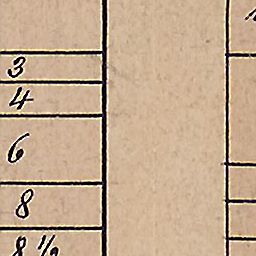 3
4
6
8
8 ½